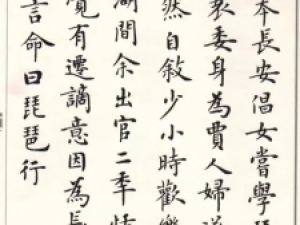 本長安倡女嘗學琵
衰委身為賈人婦遂
然自敘少小時歡樂
湖間余出官二秊恬
覺有遷謫意因為長
言命曰琵琶行